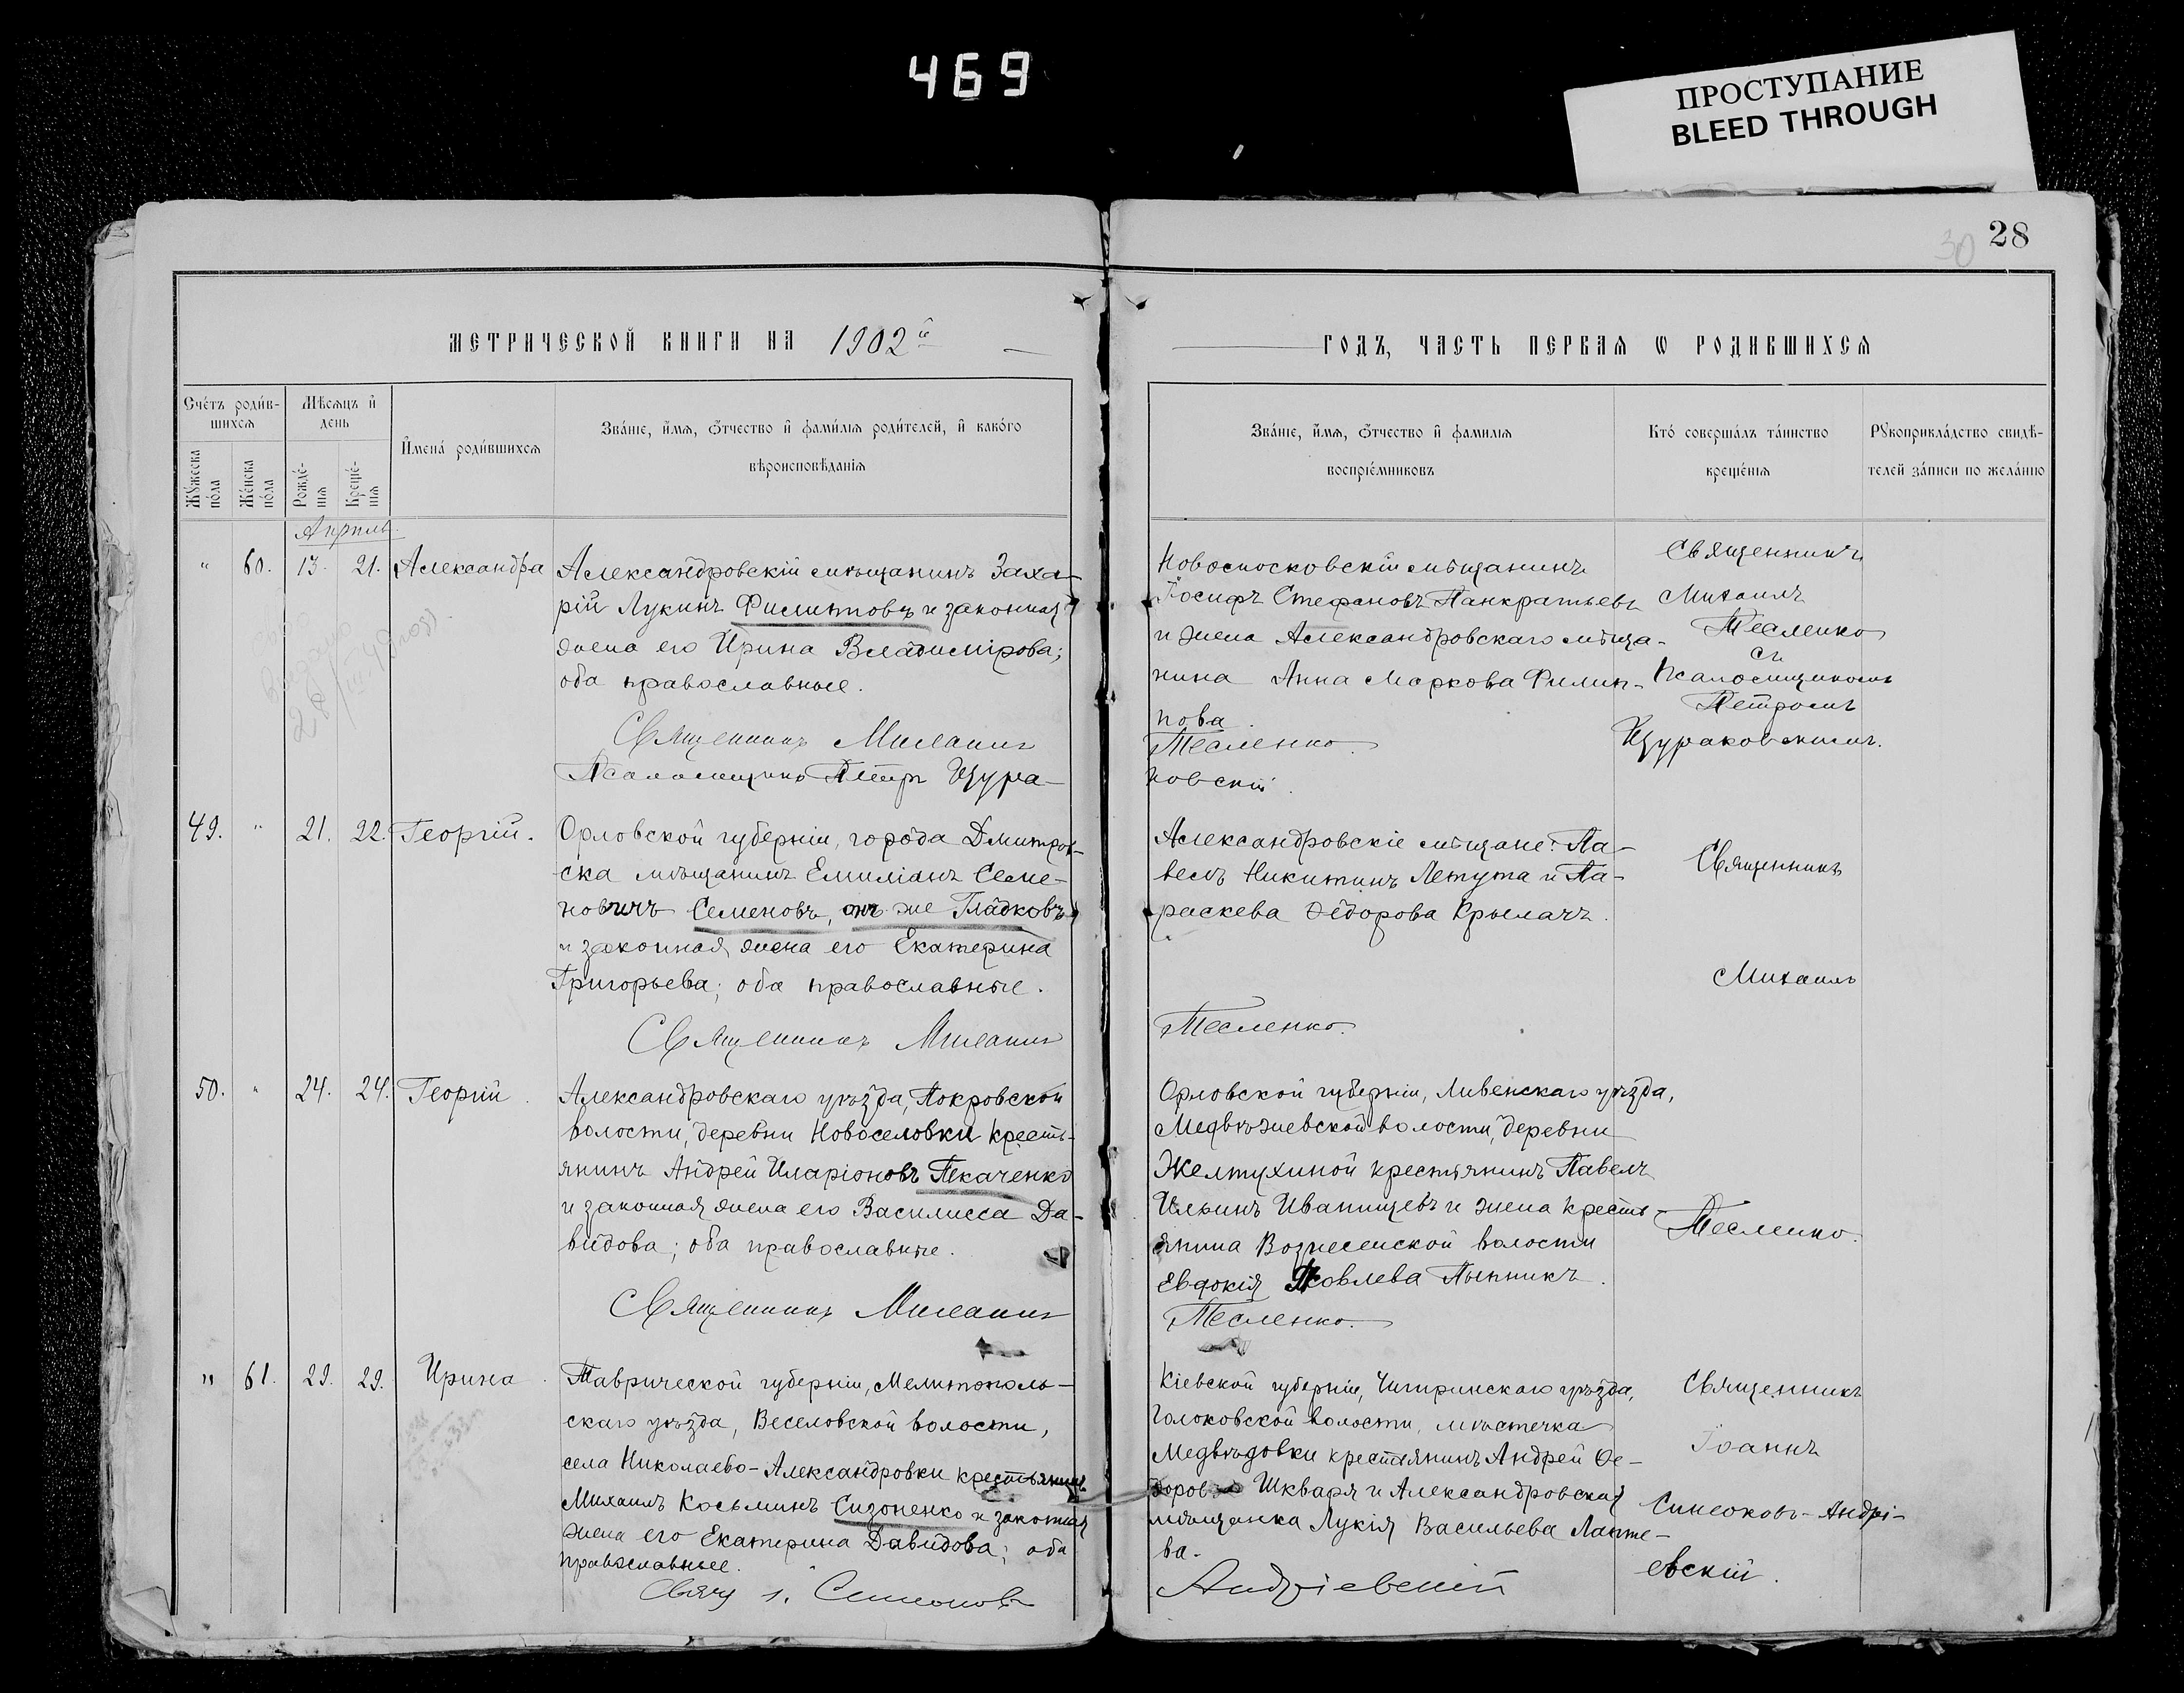 469
ПРОСТУПАНИЕ
BLEED THROUGH
28
30
МЕТРИЧЕСКОЙ КНИГИ НА 1902й
ГОДЪ, ЧАСТЬ ПЕРВАЯ Ѡ РОДИВШИХСЯ
Счетъ родив-
шихся
Мѣсяцъ и
день
Имена родившихся
Званіе, имя, ѿчество и фамилія родителей, и какого
вѣроисповѣданія
Мужеска
пола
Женска
пола
Рожде-
нія
Креще-
нія
Званіе, имя, ѿчество и фамилія
воспріемниковъ
Кто совершалъ таинство
крещенія
Рукоприкладство свидѣ-
телей записи по желанію
Апрѣль.
" 60. 13. 21. Александра
Александровскій мѣщанинъ Заха-
рій Лукинъ Филиповъ и законная
жена его Ирина Владимірова;
оба православные.
Священникъ Михаилъ
Псаломщикъ Петръ Щура-
Новомосковскій мѣщанинъ
Іосифъ Стефановъ Панкратьевъ
и жена Александровскаго мѣща-
нина Анна Маркова Филип-
пова.
Тесленко.
ковскій.
Священникъ
Михаилъ
Тесленко
съ
Псаломщикомъ
Петромъ
Щураковскимъ.
49. " 21. 22. Георгій.
Орловской губерніи, города Дмитров-
ска мѣщанинъ Емиліанъ Семе-
новичъ Семеновъ, онъ же Гладковъ
и законная жена его Екатерина
Григорьева; оба православные.
Священникъ Михаилъ
Александровскіе мѣщане: Па-
велъ Никитинъ Летута и Па-
раскева Ѳедорова Крылачъ.
Тесленко.
Священникъ
Михаилъ
50. " 24. 24. Георгій.
Александровскаго уѣзда, Покровской
волости, деревни Новоселовки кресть-
янинъ Андрей Иларіоновъ Ткаченко
и законная жена его Василисса Да-
видова; оба православные.
Священникъ Михаилъ
Орловской губерніи, Ливенскаго уѣзда,
Медвѣжевской волости, деревни
Желтухиной крестьянинъ Павелъ
Ильинъ Иванищевъ и жена кресть-
янина Вознесенской волости
Евдокія Яковлева Пыпникъ.
Тесленко.
Тесленко.
" 61. 29. 29. Ирина
Таврической губерніи, Мелитополь-
скаго уѣзда, Веселовской волости,
села Николаево-Александровки крестьянинъ
Михаилъ Косьминъ Сизоненко и законная
жена его Екатерина Давидова; оба
православные.
Свящ. І. Симоновъ
Кіевской губерніи, Чигиринскаго уѣзда,
Головковской волости, мѣстечка
Медвѣдовки крестьянинъ Андрей Ѳе-
доровъ Шкваря и Александровская
мѣщанка Лукія Васильева Лапте-
ва.
Андріевскій
Священникъ
Іоаннъ
Симоновъ-Андрі-
евскій.